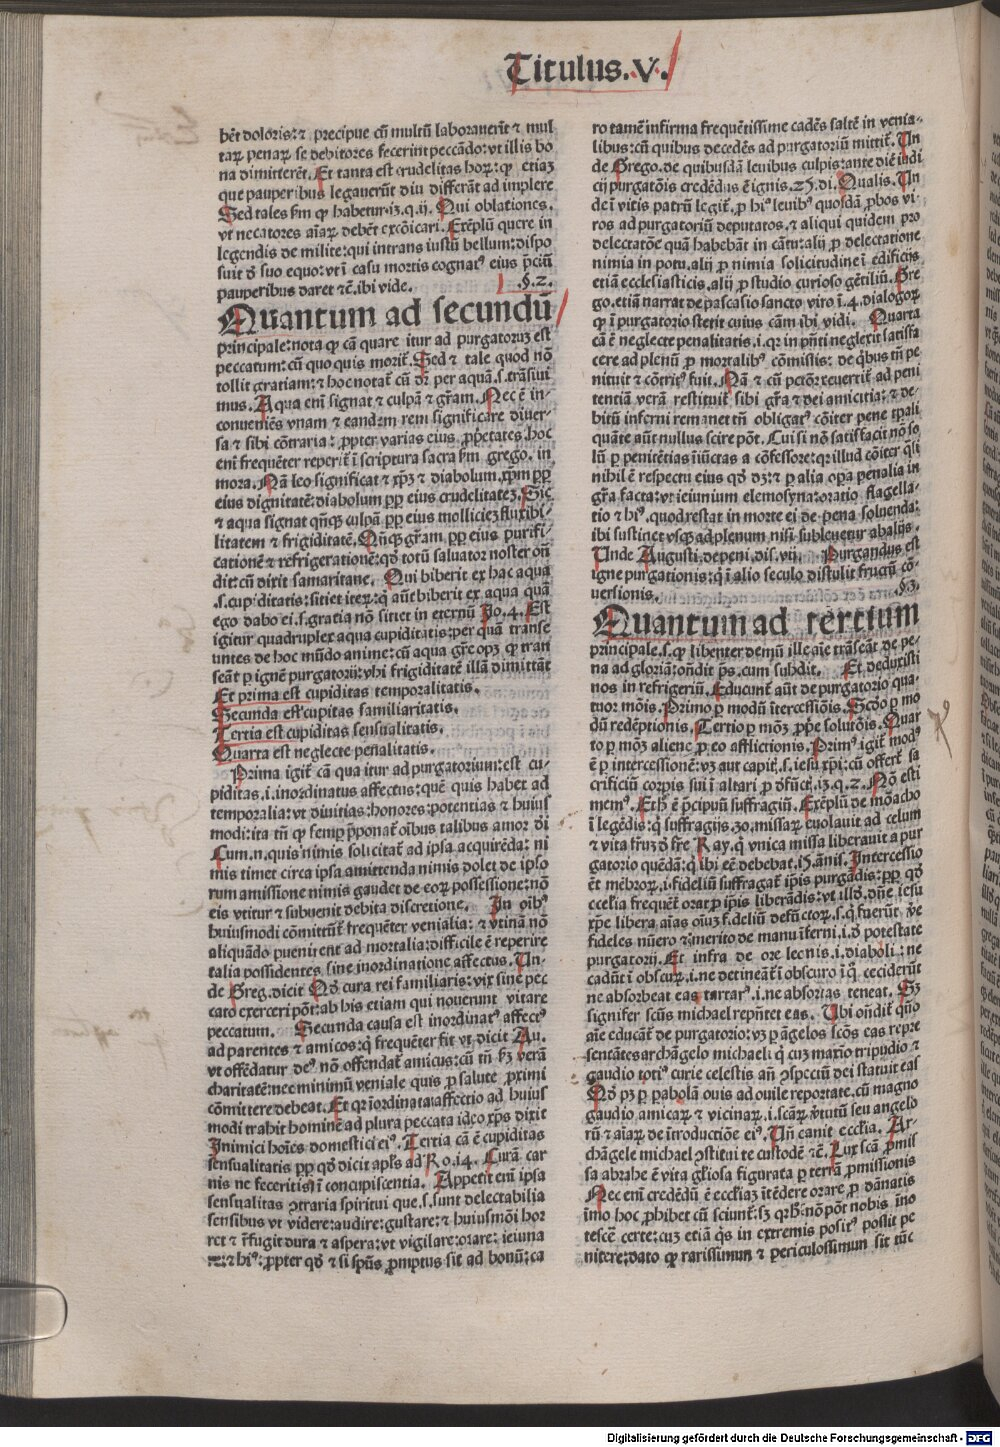 Titulus.V.
bēt doloris: ⁊ precipue cū multū laborauerūt ⁊ mul
taꝝ penaꝝ se debitores fecerint peccādo: vt illis bo
na dimitterēt. Et tanta est crudelitas hoꝝ: ꝙ etiaꝫ
que pauperibus legauerūt diu differāt ad implere
Sed tales ẜm ꝙ habetur.13.q.ij. Qui oblationes.
vt necatores aīaꝝ debēt excōicari. Exēplū quere in
legendis de milite: qui intrans iustū bellum: dispo
suit ꝺ suo equo: vt ī casu mortis cognatꝰ eius p̄ciū
pauperibus daret ⁊c̄. ibi vide. .§.2.
Quantum ad secundū
principale: nota ꝙ cā quare itur ad purgatoruꝫ est
peccatum: cū quo quis morit̄. Sed ⁊ tale quod nō
tollit gratiam: ⁊ hoc notat̄ cū dr̄ per aquā.s. trāsiui
mus. Aqua enī signat ⁊ culpā ⁊ gr̄am. Nec ē in-
conueniēs vnam ⁊ eandem rem significare diuer-
sa ⁊ sibi cōtraria: ꝓpter varias eius ꝓp̄etates. hoc
enī frequēter reperit̄ ī scriptura sacra ẜm grego. in
mora. Nā leo significat ⁊ xp̄ꝫ ⁊ diabolum. xp̄m ꝓp̄
eius dignitatē: diabolum ꝓp̄ eius crudelitateꝫ. Sic
⁊ aqua signat qn̄qꝫ culpā ꝓp̄ eius molliciēꝫ fluxibi-
litatem ⁊ frigiditatē. Qn̄qꝫ gr̄am ꝓp̄ eius purifi-
cationē ⁊ refrigerationē: qd̄ totū saluator noster on̄
dit: cū dixit samaritane. Qui biberit ex hac aqua
.s. cupiditatis: sitiet iteꝝ: q̄ aūt biberit ex aqua quā
ego dabo ei.s. gratia nō sitiet in eternū Jo.4. Est
igitur quadruplex aqua cupiditatis: per quā transe
untes de hoc mūdo anime: cū aqua gr̄e opꝫ ꝙ tran
seāt ꝑ ignē purgatorij: vbi frigiditatē illā dimittāt
Et prima est cupiditas temporalitatis.
Secunda est cupitas familiaritatis.
Tertia est cupiditas sensualitatis.
Quarta est neglecte penalitatis.
Prima igit̄ cā qua itur ad purgatorium: est cu-
piditas.i. inordinatus affectus: quē quis habet ad
temporalia: vt diuitias: honores: potentias ⁊ huius
modi: ita tn̄ ꝙ semꝑ p̄ponat̄ oībus talibus amor ꝺī
Cum.n. quis nimis solicitat̄ ad ipsa acquirēda: ni
mis timet circa ipsa amittenda nimis dolet de ipso
rum amissione nimis gaudet de eoꝝ possessione: nō
eis vtitur ⁊ subuenit debita discretione. In oībꝰ
huiusmodi cōmittūt̄ frequēter venialia: ⁊ vtinā nō
aliquādo puenirent ad mortalia: difficile ē reperire
talia possidentes sine inordinatione affectus. Un-
de Greg. dicit Qd̄ cura rei familiaris: vix sine pec
cato exerceri pōt: ab his etiam qui nouerunt vitare
peccatum. Secunda causa est inordinatꝰ affectꝰ
ad parentes ⁊ amicos: q̄ frequēter fit vt dicit Au.
vt offēdatur deꝰ nō offendat̄ amicus: cū tn̄ ẜꝫ verā
charitatē: nec minimū veniale quis ꝓ salute ꝓximi
cōmittere debeat. Et qr̄ inordinata affectio ad huius
modi trahit hominē ad plura peccata ideo xp̄s dixit
Inimici hoīes domestici eiꝰ. Tertia cā ē cupiditas
sensualitatis ꝓp̄ qd̄ dicit apl̄s ad Ro.14. Curā car
nis ne feceritis ī concupiscentia. Appetit enī ipsa
sensualitas ꝯtraria spiritui que.s. sunt delectabilia
sensibus vt videre: audire: gustare: ⁊ huiusmōi hor
ret ⁊ r̄fugit dura ⁊ aspera: vt vigilare: orare: ieiuna
re: ⁊ hiꝰ: ꝓpter qd̄ ⁊ si spūs ꝓmptus sit ad bonū: ca
ro tamē infirma frequētissime cadēs saltē in venia-
libus: cū quibus decedēs ad purgatoriū mittit̄. Un
de Grego. de quibusdā leuibus culpis: ante diē iudi
cij purgatōis credēdus ē ignis. 25.di. Qualis. Un
de ī vitis patrū legit̄. ꝓ hiꝰ leuibꝰ quosdā ꝓbos vi-
ros ad purgatoriū deputatos. ⁊ aliqui quidem pro
delectatōe quā habebāt in cātu: alij ꝓ delectatione
nimia in potu. alij ꝓ nimia solicitudine ī edificijs
etiā ecclesiasticis. alij ꝓ studio curioso gētiliū. Gre
go. etiā narrat de pascasio sancto viro ī.4. dialogoꝝ
ꝙ ī purgatorio stetit cuius cām ibi vidi. Quarta
cā ē neglecte penalitatis.i. qr̄ in pn̄ti neglexit satisfa
cere ad plenū ꝓ mortalibꝰ cōmissis: de q̄bus tn̄ pe
nituit ⁊ cōtritꝰ fuit. Nā ⁊ cū pctōr reuertit̄ ad peni
tentiā verā restituit̄ sibi gr̄a ⁊ dei amicitia: ⁊ de-
bitū inferni remanet tn̄ obligatꝰ cōiter pene tꝑali
quāte aūt nullus scire pōt. Cui si nō satisfacit nō so
lū ꝑ penitētias iūctas a cōfessore: qr̄ illud cōiter q̄si
nihil ē respectu eius qd̄ dꝫ: ⁊ ꝑ alia oꝑa penalia in
gr̄a facta: vt ieiunium elemosyna: oratio flagella-
tio ⁊ hiꝰ. quod restat in morte ei de pena soluenda:
ibi sustinet vsqꝫ ad plenum nisi subleuetur ab alijs.
Unde Augusti de peni. dis. vij. Purgandus est
igne purgationis: q̄ ī alio seculo distulit fructū cō-
uersionis. .§.3.
Quantum ad tertium
principale.s. ꝙ libenter demū ille aīe trāseāt de pe-
na ad gloriā: on̄dit ps̄. cum subdit. Et deduxisti
nos in refrigeriū. Educunt̄ aūt de purgatorio qua-
tuor mōis. Primo ꝑ modū ītercessiōis. Scd̄o ꝑ mo
dū redēptionis. Tertio ꝑ mōꝫ ꝓp̄e solutōis. Quar
to ꝑ mōꝫ aliene ꝓ eo afflictionis. Primꝰ igit̄ modꝰ
ē ꝑ intercessionē: vꝫ aut capit̄.s. iesu xp̄i: cū offert̄ sa
crificiū corpis sui ī altari ꝓ ꝺfūct̄.13.q.2. Nō esti
memꝰ. Et h̄ ē p̄cipuū suffragiū. Exēplū de mōacho
ī legēdis: q̄ suffragijs.30. missaꝝ euolauit ad celum
⁊ vita fr̄uꝫ ꝺ fr̄e Ray. q̄ vnica missa liberauit a pur
gatorio quēdā: q̄ ibi eē debebat.15. ānis. Intercessio
ēt mēbroꝝ.i. fideliū suffragat̄ ip̄is purgādis: ꝓp̄ qd̄
eccl̄ia frequēt̄ orat ꝓ ip̄is liberādis: vt illd̄. dn̄e iesu
xp̄e libera aīas oīuꝫ fideliū defūctoꝝ.s. q̄ fuerūt v̄e
fideles nūero ⁊ merito de manu īferni.i. ꝺ potestate
purgatorij. Et infra de ore leonis.i. diaboli: ne
cadūt ī obscuꝝ.i. ne detineāt̄ ī obscuro ī q̄ ceciderūt
ne absorbeat eas tartarꝰ.i. ne absortas teneat. Sꝫ
signifer scūs michael repn̄tet eas. Ubi on̄dit̄ qn̄o
aīe educāt̄ de purgatorio: vꝫ ꝑ āgelos scōs eas repre
sentātes archāgelo michaeli: q̄ cuꝫ maxīo tripudio ⁊
gaudio totiꝰ curie celestis an̄ ꝯspectū dei statuit eas
Qd̄ pꝫ ꝑ pabolā ouis ad ouile reportate. cū magno
gaudio amicaꝝ ⁊ vicinaꝝ.i. scāꝝ v̄tutū seu angelo
rū ⁊ aīaꝝ de ītroductiōe eiꝰ. Un̄ canit eccl̄ia. Ar-
chāgele michael ꝯstitui te custodē ⁊c̄. Lux scā ꝓmis
sa abrahe ē vita gl̄iosa figurata ꝑ terrā ꝓmissionis
Nec enī credēdū ē eccl̄iaꝫ ītēdere orare ꝓ dānatis
īmo hoc ꝓhibet cū sciunt̄: sꝫ qr̄ h̄ nō pōt nobis īno
tescē certe: cuꝫ etiā q̄s in extremis positꝰ possit pe
nitere: dato ꝙ rarissimum ⁊ periculosissimum sit tūc
Digitalisierung gefördert durch die Deutsche Forschungsgemeinschaft - DFG